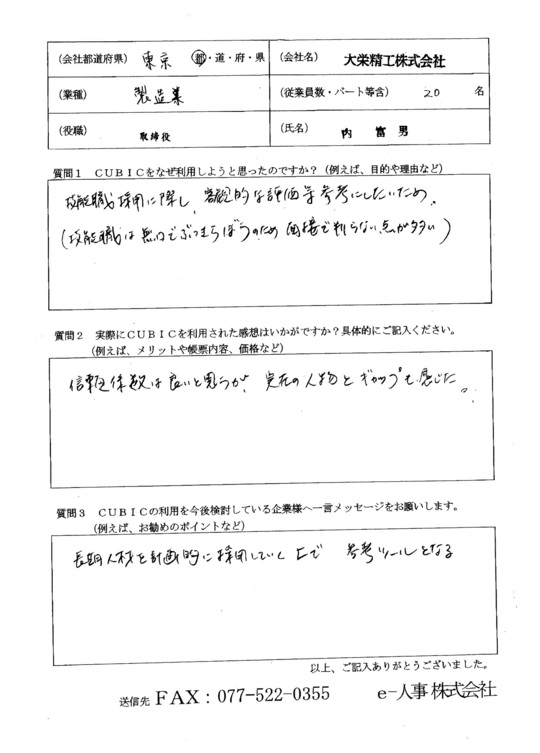 （会社都道府県） 東京 都・道・府・県 （会社名） 大栄精工株式会社
（業種） 製造業 （従業員数・パート等含） 20 名
（役職） 取締役 （氏名） 内 富 男
質問１ ＣＵＢＩＣをなぜ利用しようと思ったのですか？（例えば、目的や理由など）
技能職採用に際し、客観的な評価等参考にしたいため。
（技能職は無口でぶっきらぼうのため面接で判らない点が多い）
質問２ 実際にＣＵＢＩＣを利用された感想はいかがですか？具体的にご記入ください。
（例えば、メリットや帳票内容、価格など）
信頼係数は良いと思うが、実在の人物とギャップも感じた。
質問３ ＣＵＢＩＣの利用を今後検討している企業様へ一言メッセージをお願いします。
（例えば、お勧めのポイントなど）
長期人材を計画的に採用していく上で 参考ツールとなる
以上、ご記入ありがとうございました。
送信先 ＦＡＸ：077-522-0355 e-人事株式会社